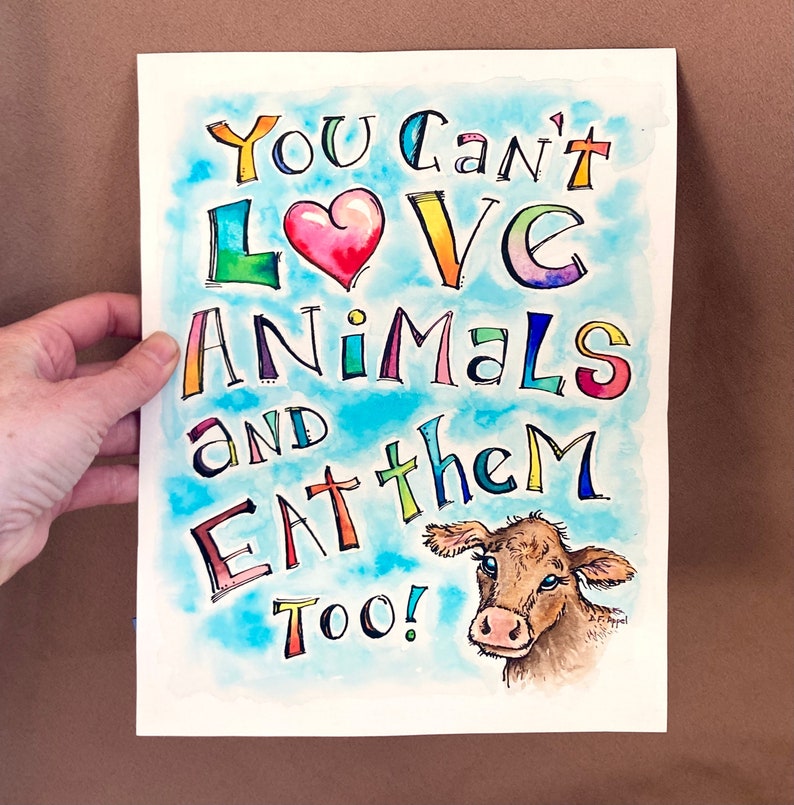 You Can't
LOVE
ANiMaLS
aND
EAT theM
TOO!
D.F. Appel